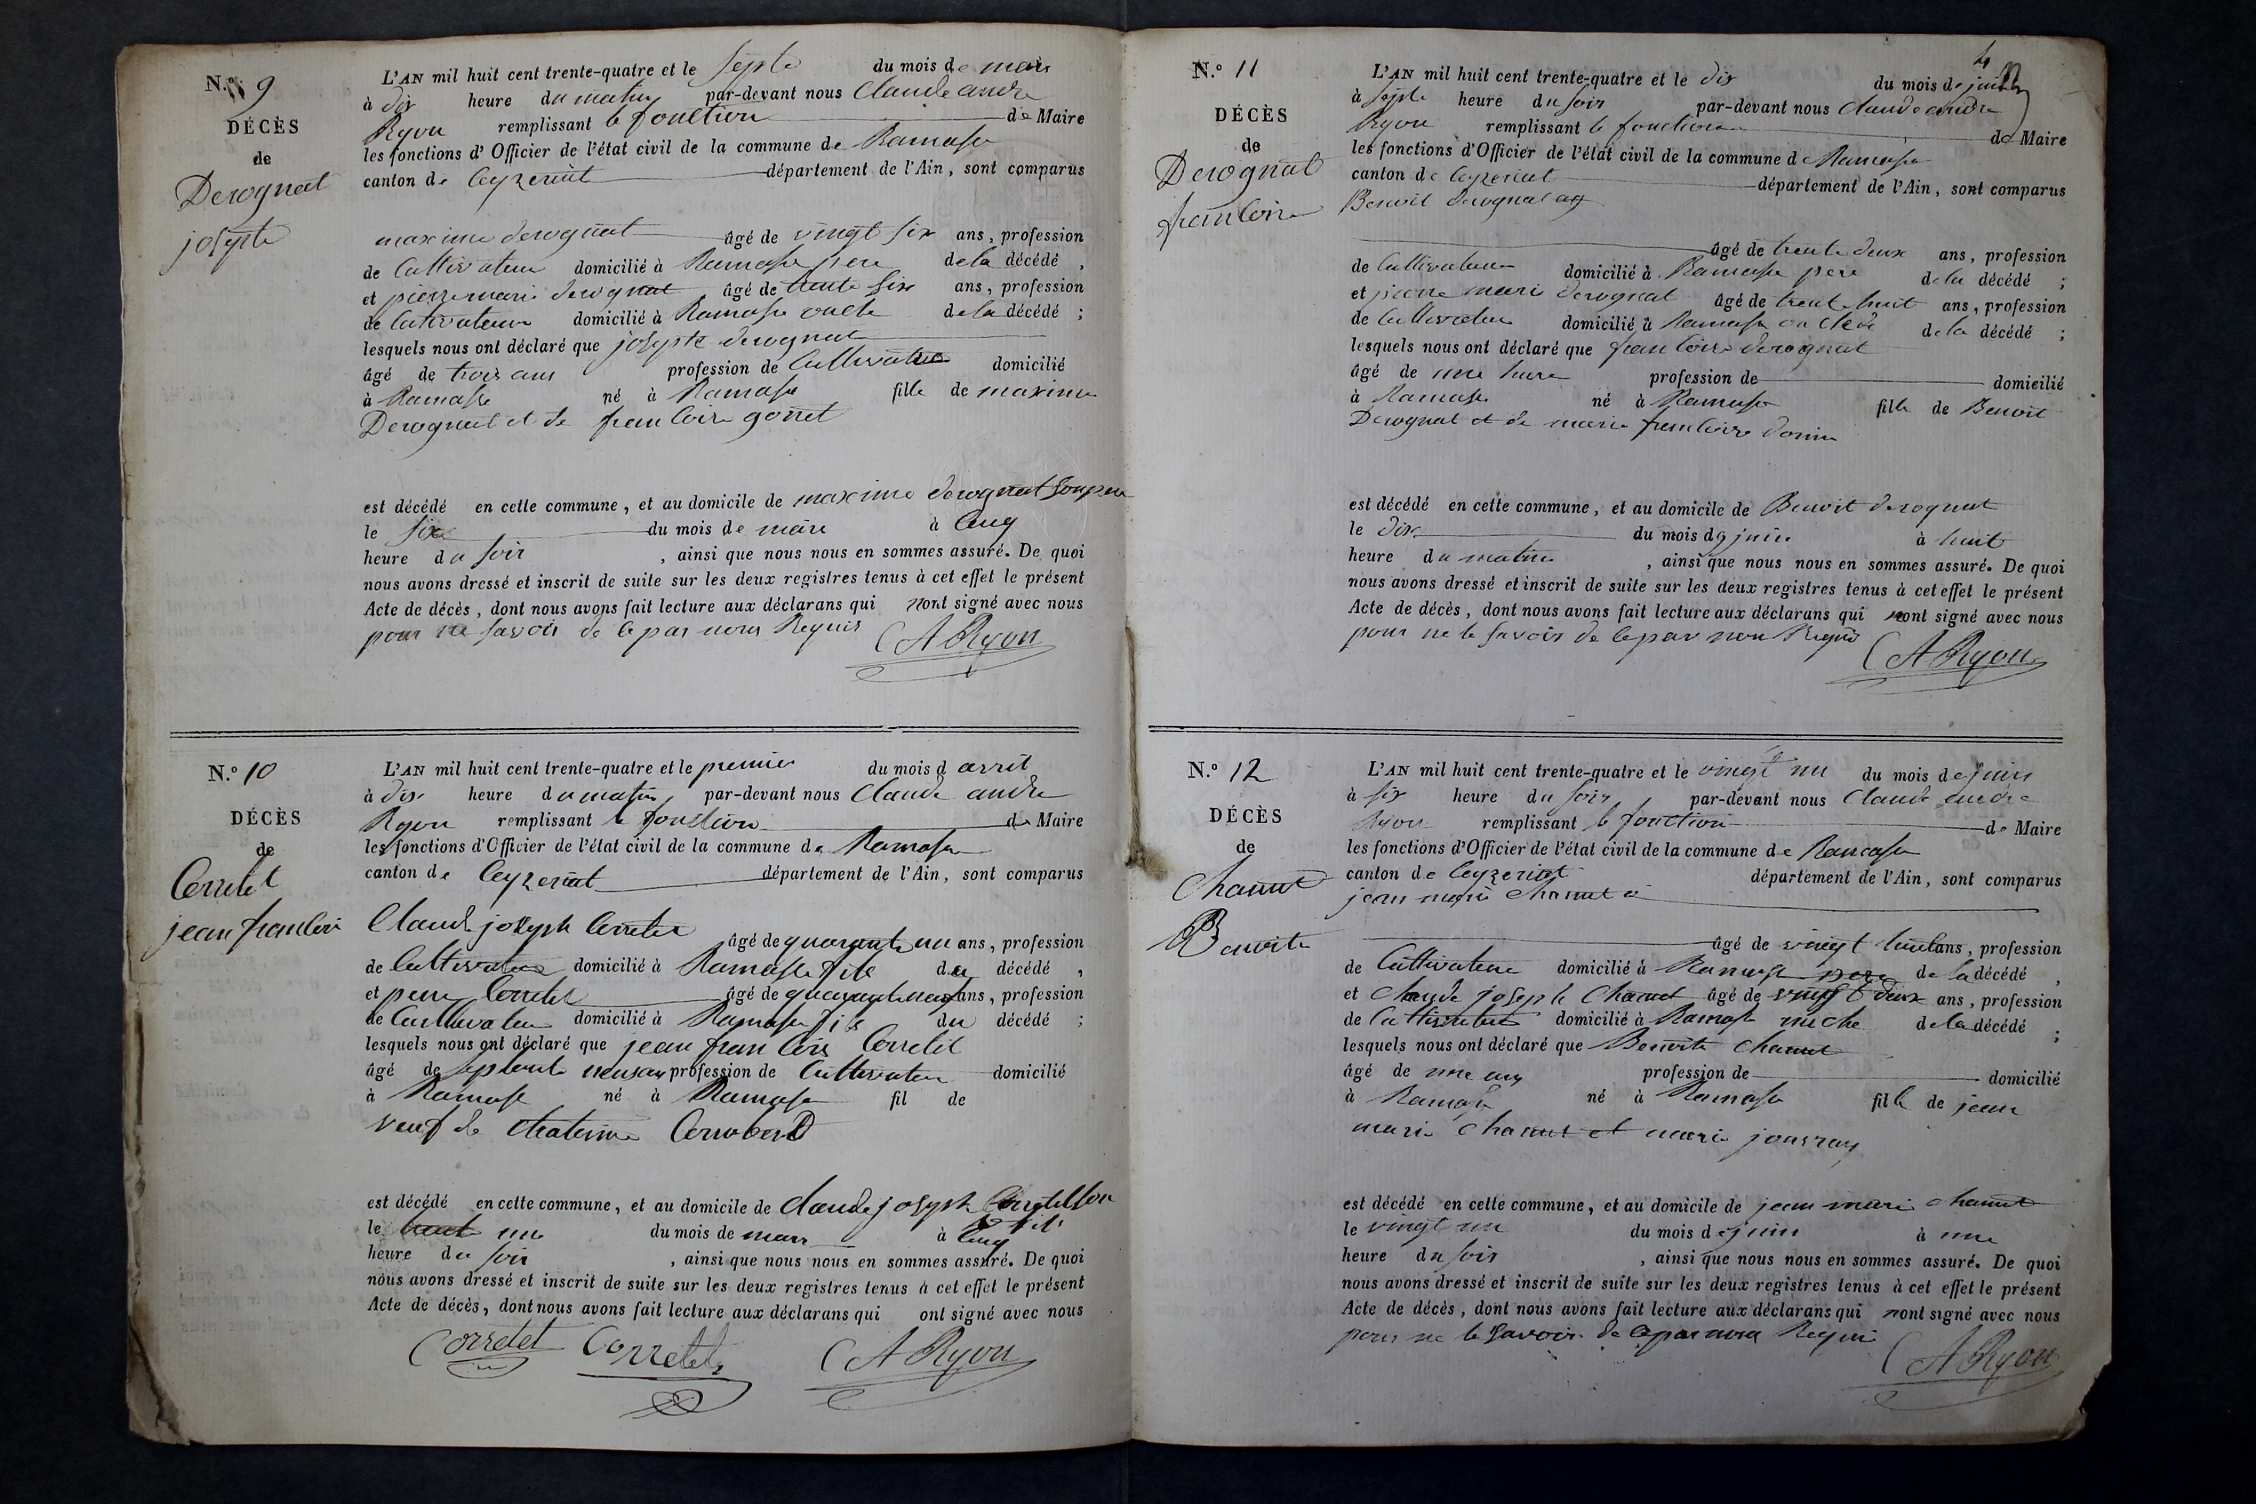 N.º 9
DÉCÈS
de
Derognat
josepte
L'AN mil huit cent trente-quatre et le septe du mois de mars
à dix heure du matin par-devant nous Claude andre
Ryon remplissant le fonction de Maire
les fonctions d'Officier de l'état civil de la commune de Ramasse
canton de Ceyzeriat département de l'Ain, sont comparus
maxime derognat âgé de vingt six ans, profession
de Cultivateur domicilié à Ramasse pere de la décédé,
et pierre marie derognat âgé de trente six ans, profession
de Cutivateur domicilié à Ramasse oncle de la décédé;
lesquels nous ont déclaré que josepte derognat
âgé de trois ans profession de Cultivateur domicilié
à Ramasse né à Ramasse fille de maxime
Derognat et de francoise gorret
est décédé en cette commune, et au domicile de maxime derognat son pere
le six du mois de mars à cinq
heure du soir, ainsi que nous nous en sommes assuré. De quoi
nous avons dressé et inscrit de suite sur les deux registres tenus à cet effet le présent
Acte de décès, dont nous avons fait lecture aux déclarans qui nont signé avec nous
pour ne savoir de ce par nous Requis CA Ryon
N.º 10
DÉCÈS
de
Corretet
jean francois
L'AN mil huit cent trente-quatre et le premier du mois d avril
à dix heure du matin par-devant nous Claude andre
Ryon remplissant le fonction de Maire
les fonctions d'Officier de l'état civil de la commune de Ramasse
canton de Ceyzeriat département de l'Ain, sont comparus
Claude joseph Corretet âgé de quarante un ans, profession
de Cultivateur domicilié à Ramasse fils du décédé,
et pierre Corretet âgé de ans, profession
de Cultivateur domicilié à Ramasse fils du décédé;
lesquels nous ont déclaré que jean francois Corretet
âgé de septante profession de Cultivateur domicilié
à Ramasse né à Ramasse fil de
veuf de
est décédé en cette commune, et au domicile de Claude joseph Corretet son fils
le trente un du mois de mars à cinq
heure du soir, ainsi que nous nous en sommes assuré. De quoi
nous avons dressé et inscrit de suite sur les deux registres tenus à cet effet le présent
Acte de décès, dont nous avons fait lecture aux déclarans qui ont signé avec nous
Corretet Corretet CA Ryon
4
N.º 11
DÉCÈS
de
Derognat
francoise
L'AN mil huit cent trente-quatre et le dix du mois de juin
à septe heure du soir par-devant nous Claude andre
Ryon remplissant le fonction de Maire
les fonctions d'Officier de l'état civil de la commune de Ramasse
canton de Ceyzeriat département de l'Ain, sont comparus
Benoit derognat
âgé de trente deux ans, profession
de Cultivateur domicilié à Ramasse pere de la décédé;
et pierre marie derognat âgé de trent huit ans, profession
de Cultivateur domicilié à Ramasse oncle de la décédé;
lesquels nous ont déclaré que francoise derognat
âgé de une hure profession de domicilié
à Ramasse né à Ramasse fille de Benoit
Derognat et de marie francoise
est décédé en cette commune, et au domicile de Benoit derognat
le dix du mois de juin à huit
heure du matin, ainsi que nous nous en sommes assuré. De quoi
nous avons dressé et inscrit de suite sur les deux registres tenus à cet effet le présent
Acte de décès, dont nous avons fait lecture aux déclarans qui nont signé avec nous
pour ne le savoir de ce par nou Requis CA Ryon
N.º 12
DÉCÈS
de
Chanut
Benoite
L'AN mil huit cent trente-quatre et le vingt un du mois de juin
à six heure du soir par-devant nous Claude andre
Ryon remplissant le fonction de Maire
les fonctions d'Officier de l'état civil de la commune de Ramasse
canton de Ceyzeriat département de l'Ain, sont comparus
jean marie Chanut
âgé de vingt huit ans, profession
de Cultivateur domicilié à Ramasse pere de la décédé,
et Claude joseph Chanut âgé de vingt deux ans, profession
de Cultivateur domicilié à Ramasse de la décédé;
lesquels nous ont déclaré que Benoite Chanut
âgé de une profession de domicilié
à Ramasse né à Ramasse fille de jean
marie Chanut et marie
est décédé en cette commune, et au domicile de jean marie Chanut
le vingt un du mois de juin à une
heure du soir, ainsi que nous nous en sommes assuré. De quoi
nous avons dressé et inscrit de suite sur les deux registres tenus à cet effet le présent
Acte de décès, dont nous avons fait lecture aux déclarans qui nont signé avec nous
pour ne le savoir de ce par nous Requi CA Ryon